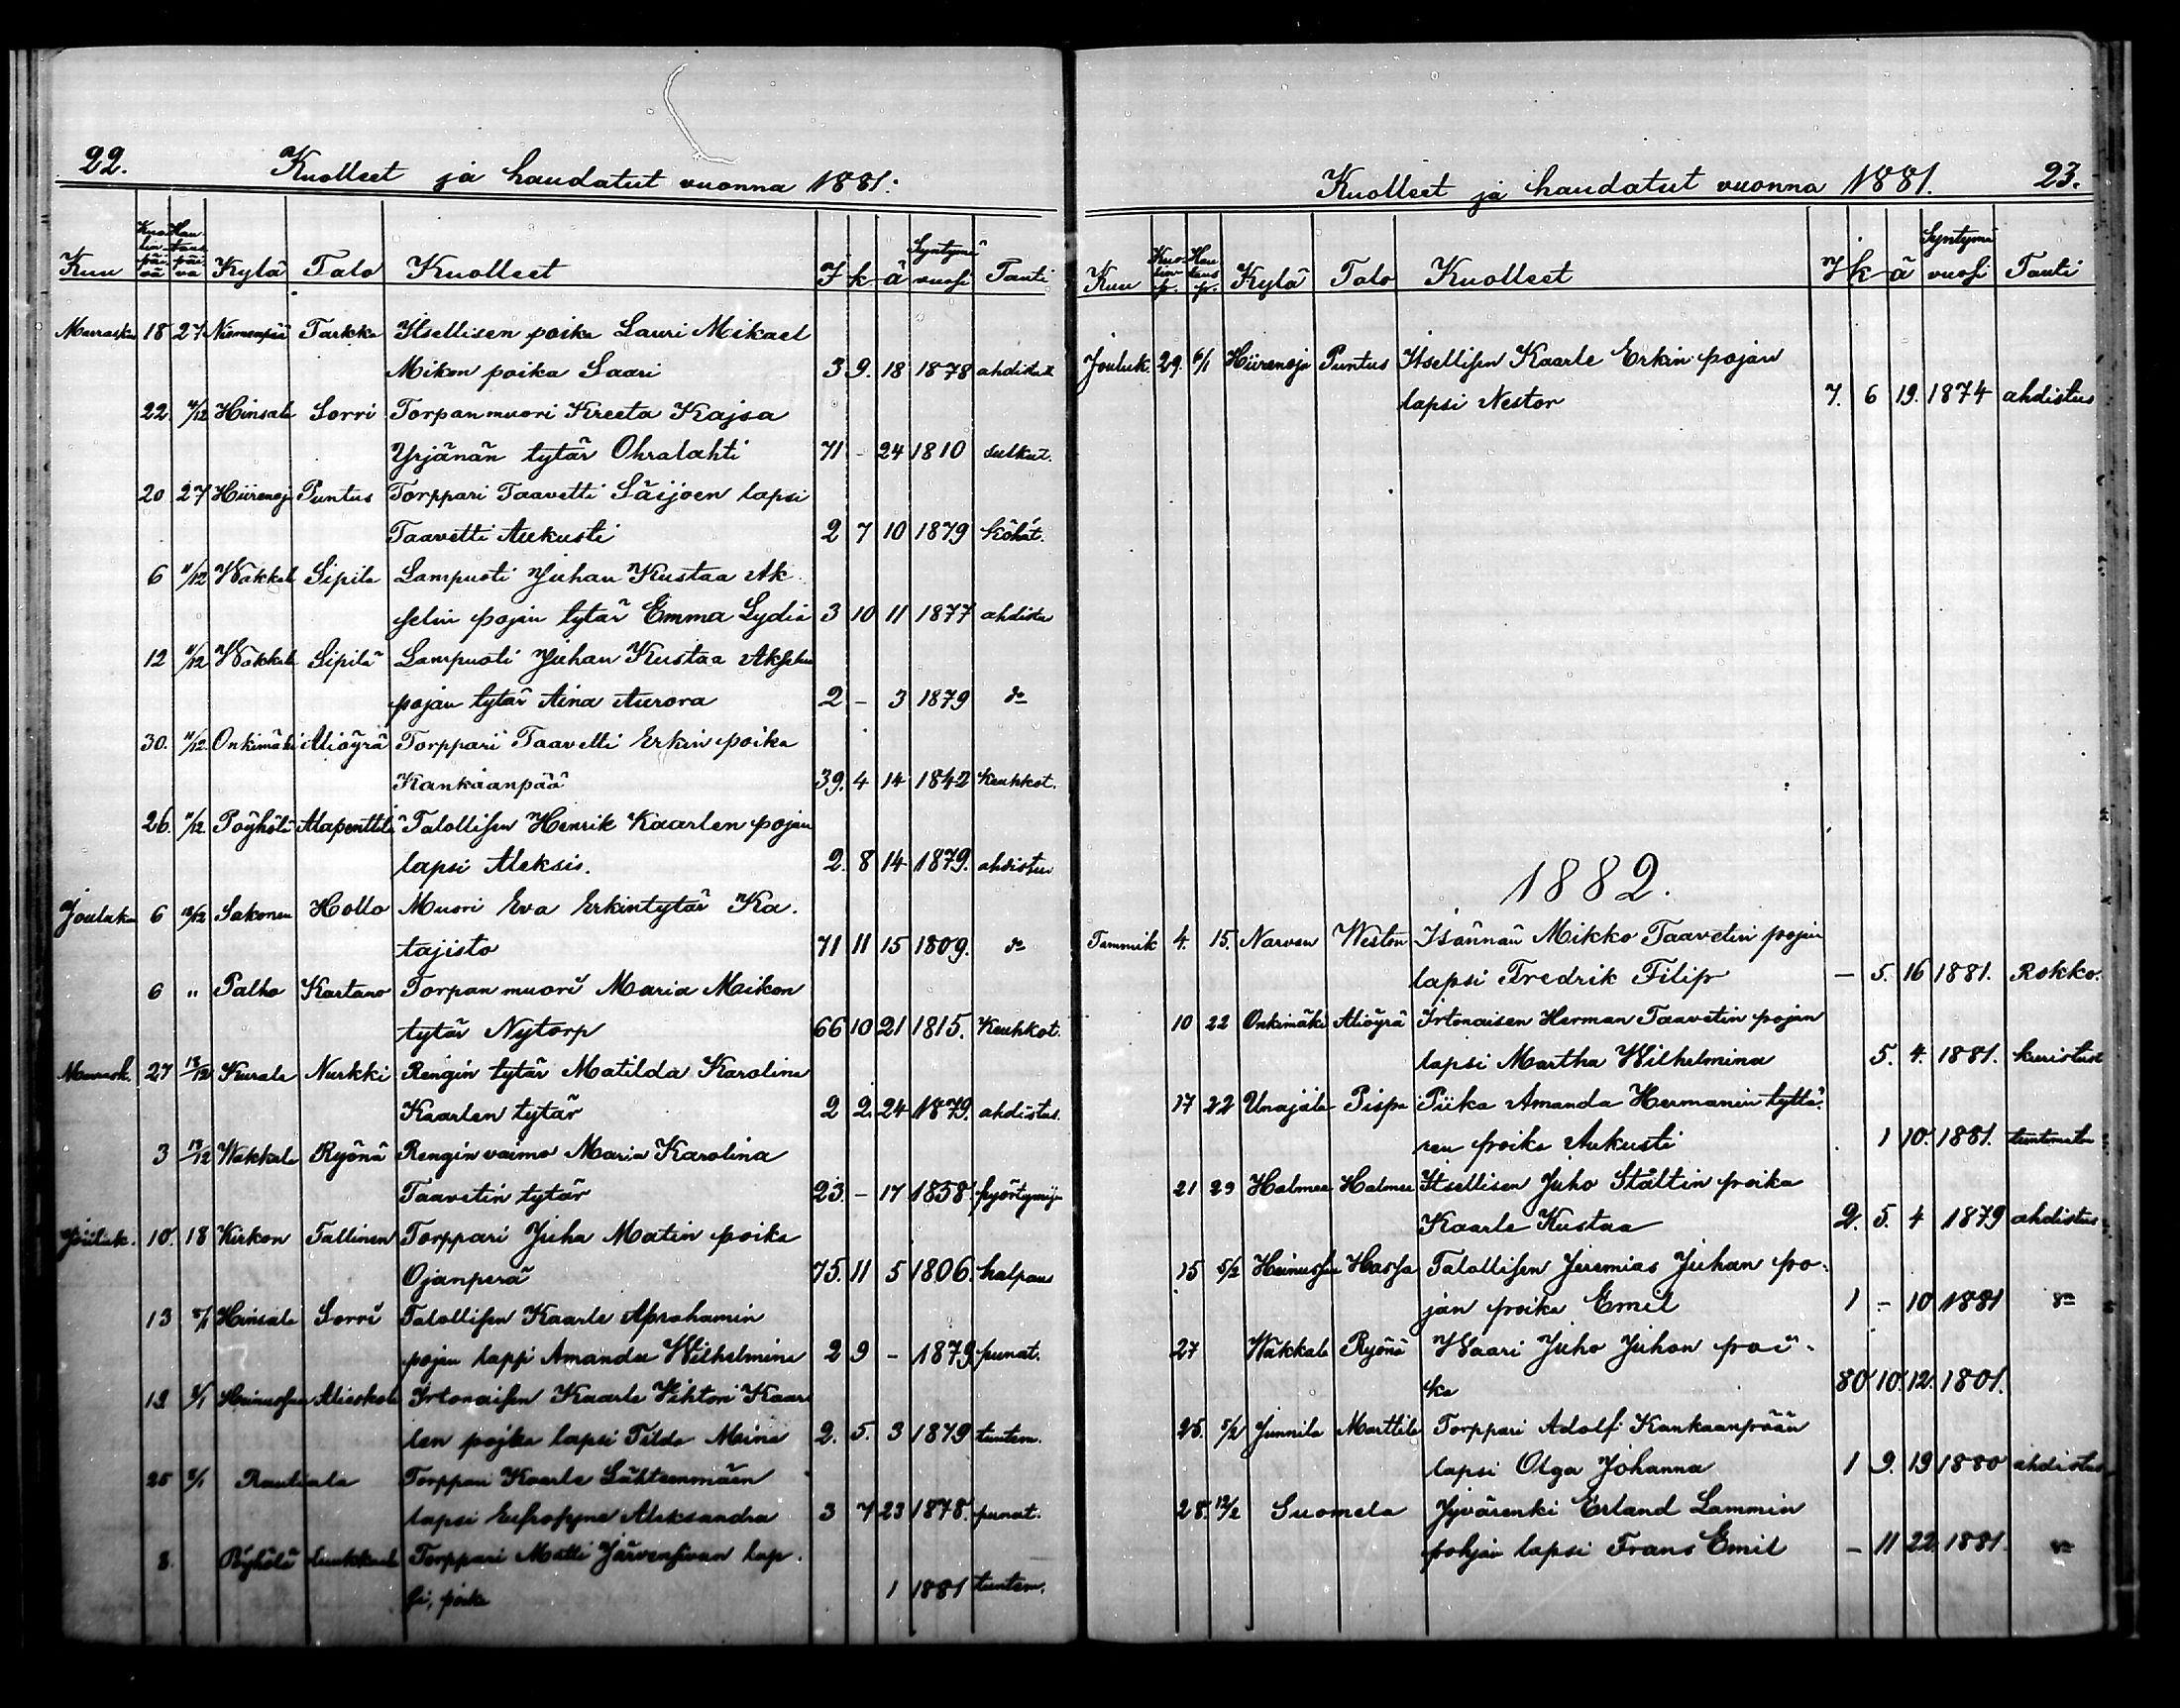 22. Kuolleet ja haudatut vuonna 1881.
Kuu Kuolinpäivä Hautauspäivä Kylä Talo Kuolleet I k ä Syntymä vuosi Tauti
Marrasku 18 27 Niemenpää Tarkka Itsellisen poika Lauri Mikael
Mikon poika Saari 3 9. 18 1878 ahdistus
22 4/12 Hinsala Sorri Torpanmuori Kreeta Kajsa
Yrjänän tytär Ohralahti 71 - 24 1810
20 27 Hiirenoja Puntus Torppari Taavetti Säijoen lapsi
Taavetti Aukusti 2 7 10 1879 Köhät.
6 11/12 Wakkala Sipila Lampuoti Juhan Kustaa Ak
selin pojan tytär Emma Lydia 3 10 11 1877 ahdistu
12 11/12 Wakkala Sipilä Lampuoti Juhan Kustaa Akselin
pojan tytär Aina Aurora 2 - 3 1879 do
30. 11/12 Onkimäki Aliöyrä Torppari Taavetti Erkin poika
Kankaanpää 39. 4 14 1842 Keuhkot.
26. 11/12 Pöyhölä Alapenttilä Talollisen Henrik Kaarlen pojan
lapsi Aleksis. 2. 8 14 1879. ahdistus
Jouluku 6 Sakonen Hollo Muori Eva Erkintytär Ka.
tajisto 71 11 15 1809. do
6 " Palho Kartano Torpan muori Maria Mikon
tytär Nytorp 66 10 21 1815. Keuhkot.
Marrask. 27 13/12 Kurala Nurkki Rengin tytär Matilda Karolina
Kaarlen tytär 2 2. 24 1879. ahdistus.
3 13/12 Wakkala Ryönä Rengin vaimo Maria Karolina
Taavetin tytär 23. - 17 1858.
Jouluk. 10. 18 Kirkon Tallinen Torppari Juha Matin poika
Ojanperä 75. 11 5 1806. halpaus
13 Hinsala Sorri Talollisen Kaarle Aprahamin
pojan lapsi Amanda Wilhelmina 2 9 - 1879 punat.
Alieskola Irtonaisen Kaarle Wihtori Kaar
len pojka lapsi Tilda Maina 2. 5. 3 1879 tuntem.
25 Rautiala Torppari Kaarle Lähteenmäen
lapsi Eufrosyna Aleksandra 3 7 23 1878. punat.
8. Pöyhölä Torppari Matti Järvensivun lap.
si, poika 1 1881 tuntem.
Kuolleet ja haudatut vuonna 1881. 23.
Kuu Kuolin p. Hautaus p. Kylä Talo Kuolleet I k ä Syntymä vuosi Tauti
Jouluk. 29. 6/1 Hiirenoja Puntus Itsellisen Kaarle Erkin pojan
lapsi Nestor 7. 6 19. 1874 ahdistus
1882.
Tammik 4. 15. Narvan Weston Isännän Mikko Taavetin pojan
lapsi Fredrik Filip — 5. 16 1881. Rokko.
10 22 Onkimäki Aliöyrä Irtonaisen Herman Taavetin pojan
lapsi Martha Wilhelmina 5. 4. 1881. kuristus
17 22 Unajala Pispa Piika Amanda Hermanin tyttä.
ren poika Aukusti 1 10. 1881. tuntematon
21 29 Halmee Halmee Itsellisen Juho Stoltin poika
Kaarle Kustaa 2. 5. 4 1879 ahdistus
15 5/2 Hassa Talollisen Jeremias Juhan po-
jan poika Emil 1 - 10 1881 do
27 Wakkala Ryönä Waari Juho Juhon poi-
ka 80 10. 12. 1801.
25. 5/2 Junnila Marttila Torppari Adolf Kankaanpään
lapsi Olga Johanna 1 9. 19 1880 ahdistus
28. 12/2 Suomela Jyvärenki Erland Lammin
pohjan lapsi Frans Emil — 11 22 1881. do